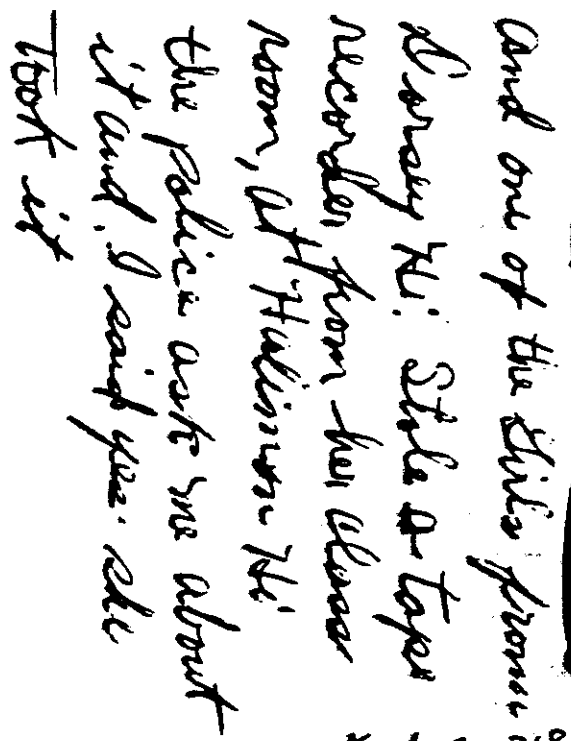 and one of the Girls from
Dorsey Hi. Stole a tape
recorder, from her class
room, at Holimon Hi
the Police ask me about
it and. I said yes. she
Took it